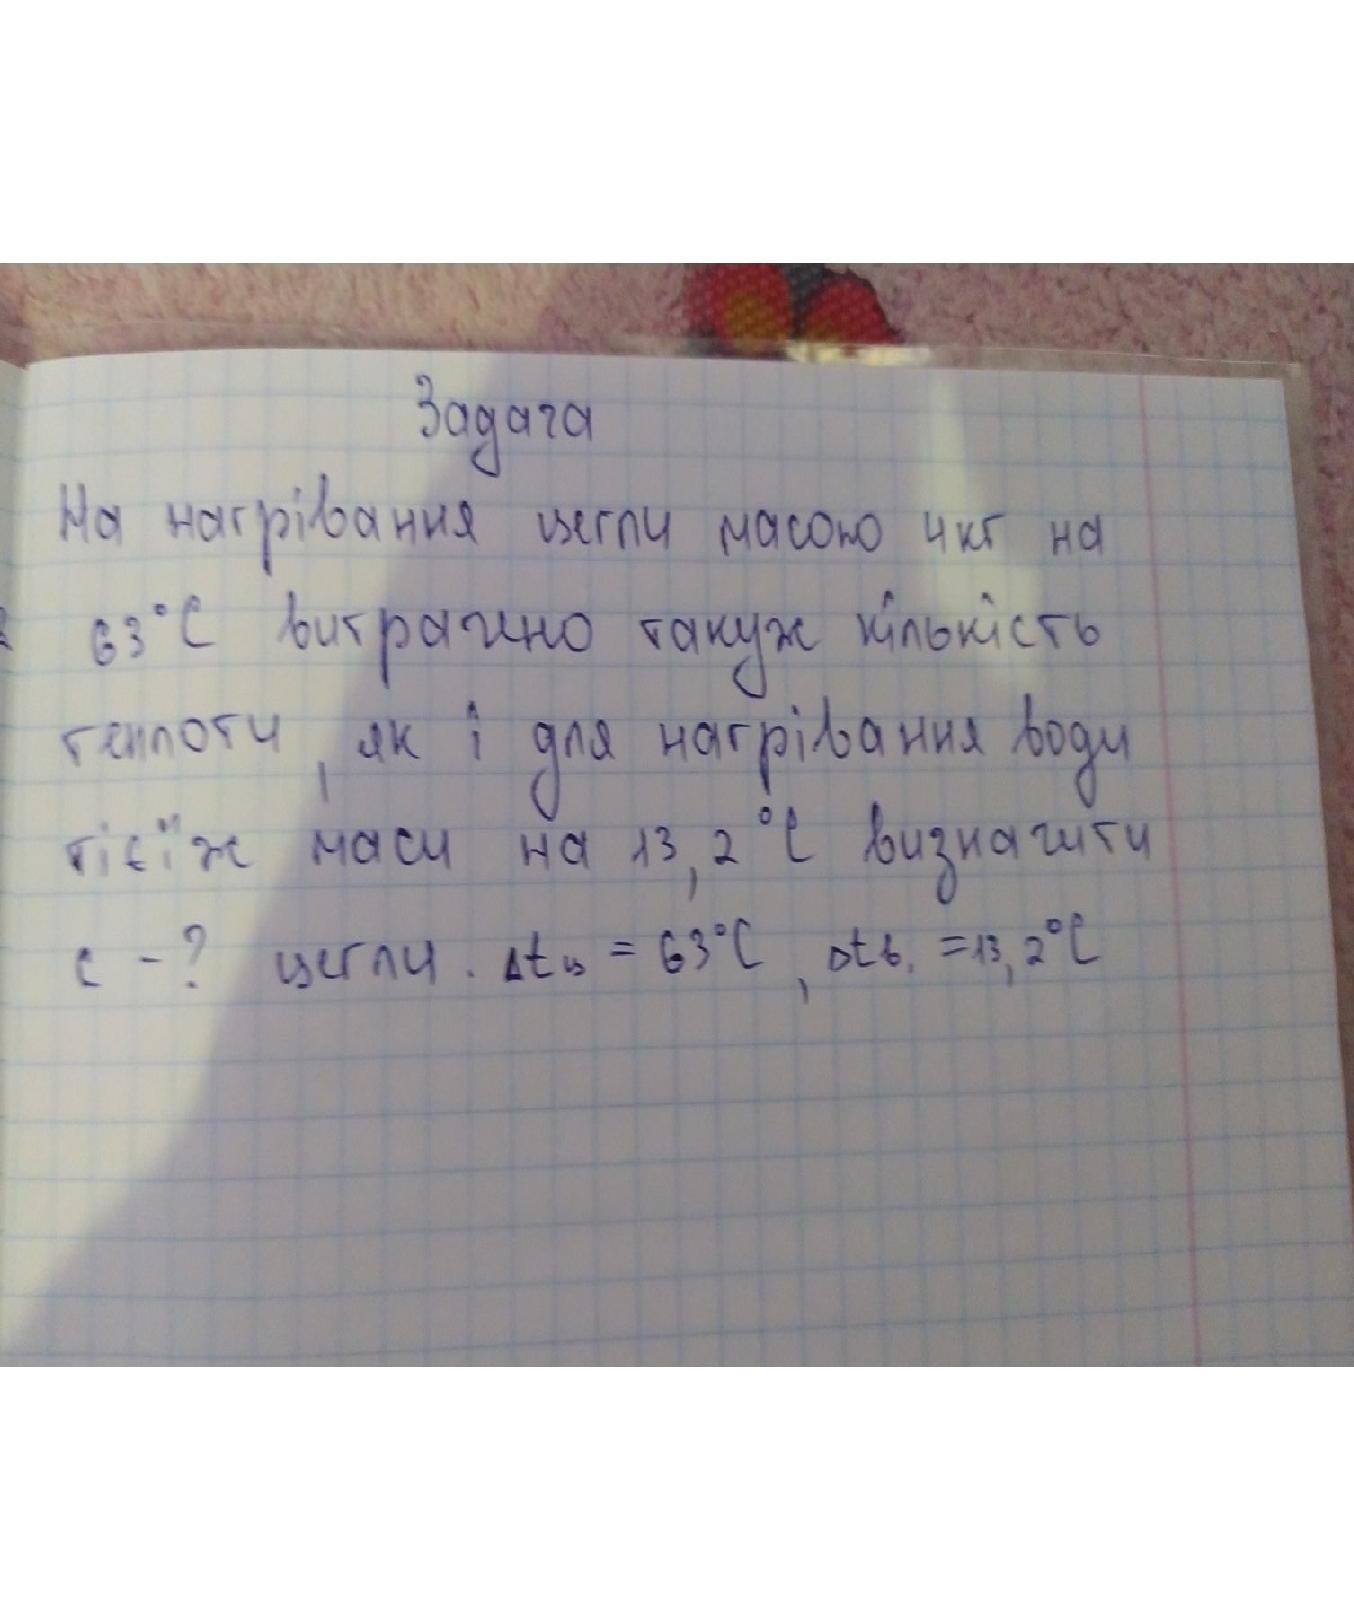 Задача
На нагрівання цегли масою 4кг на
63°C витрачено такуж кількість
теплоти, як і для нагрівання води
тієїж маси на 13,2°C визначити
c - ? цегли. Δtц = 63°C, Δtв. = 13,2°C